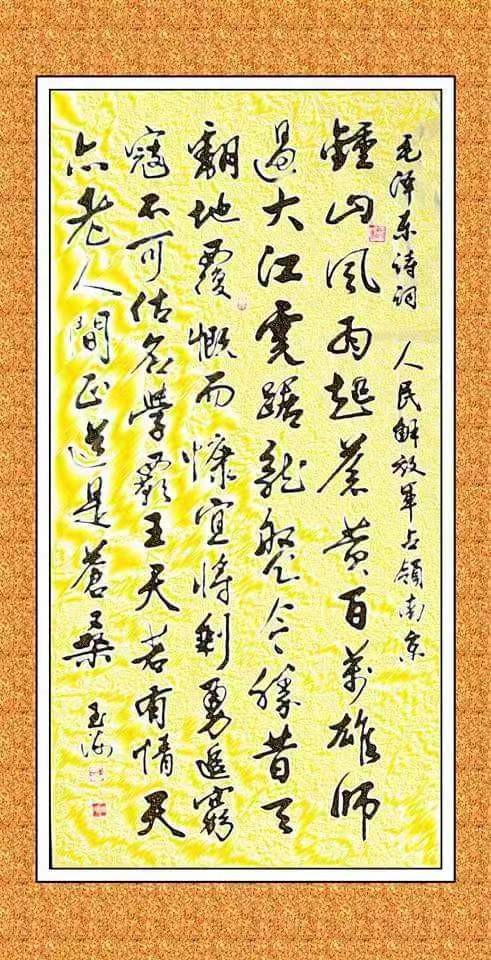 毛泽东诗词 人民解放军占领南京
鍾山风雨起蒼黄百萬雄师
過大江虎踞龙盘今勝昔天
翻地覆慨而慷宜将剩勇追窮
寇不可沽名學霸王天若有情天
亦老人間正道是蒼桑
玉海